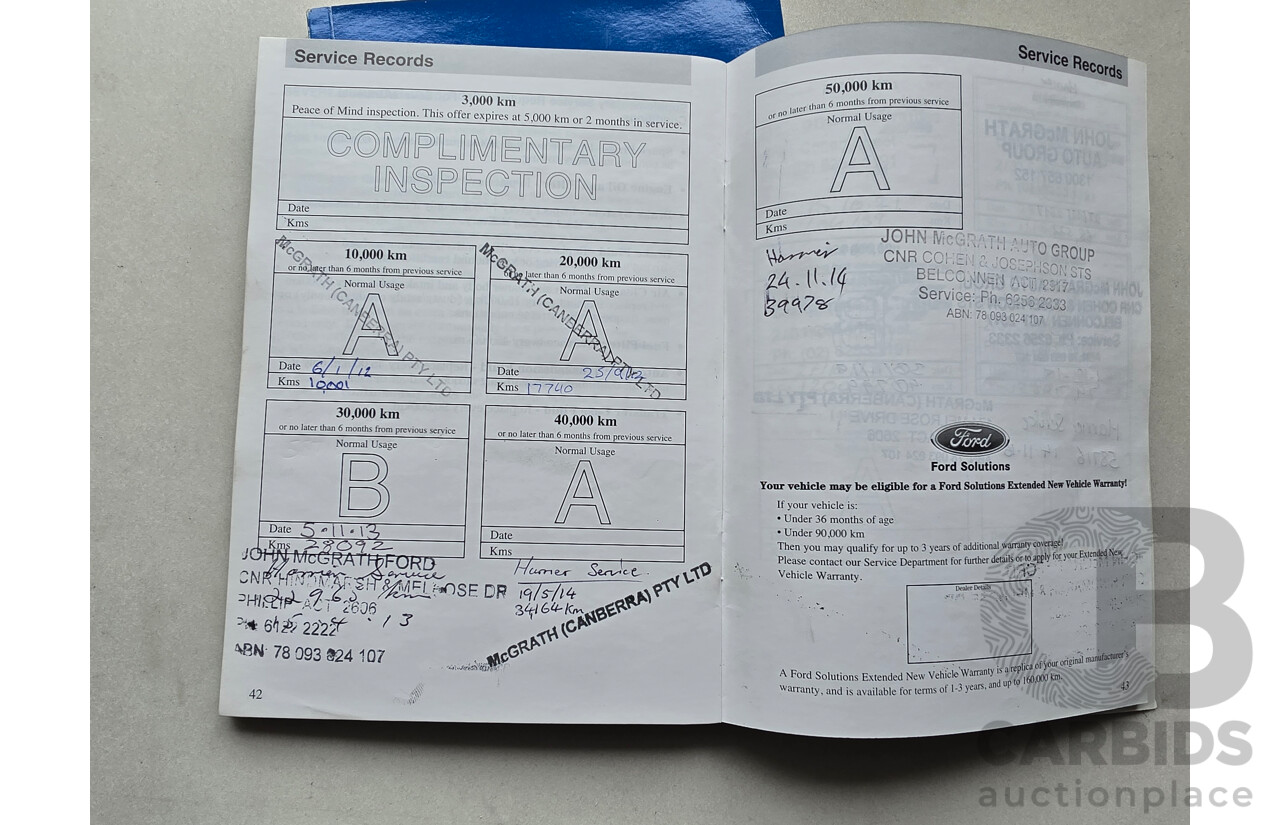 Service Records
3,000 km
Peace of Mind inspection. This offer expires at 5,000 km or 2 months in service.
COMPLIMENTARY
INSPECTION
Date
Kms
10,000 km
or no later than 6 months from previous service
Normal Usage
A
McGRATH (CANBERRA) PTY LTD
Date 6/1/12
Kms 10,001
20,000 km
or no later than 6 months from previous service
Normal Usage
A
McGRATH (CANBERRA) PTY LTD
Date
Kms 17740
30,000 km
or no later than 6 months from previous service
Normal Usage
B
Date 5.11.13
Kms 28092
JOHN McGRATH FORD
Service
CNR HINDMARSH & MELROSE DR
PHILLIP ACT 2606
2222
ABN: 78 093 024 107
40,000 km
or no later than 6 months from previous service
Normal Usage
A
Date
Kms
Service
19/5/14
34164 Km
McGRATH (CANBERRA) PTY LTD
42
Service Records
50,000 km
or no later than 6 months from previous service
Normal Usage
A
Date
Kms
24.11.14
39978
JOHN McGRATH AUTO GROUP
CNR COHEN & JOSEPHSON STS
BELCONNEN ACT 2617
Service: Ph. 6256 2333
ABN: 78 093 024 107
Ford
Ford Solutions
Your vehicle may be eligible for a Ford Solutions Extended New Vehicle Warranty!
If your vehicle is:
• Under 36 months of age
• Under 90,000 km
Then you may qualify for up to 3 years of additional warranty coverage!
Please contact our Service Department for further details or to apply for your Extended New
Vehicle Warranty.
Dealer Details
A Ford Solutions Extended New Vehicle Warranty is a replica of your original manufacturer's
warranty, and is available for terms of 1-3 years, and up to 160,000 km.
43
CARBIDS
auctionplace